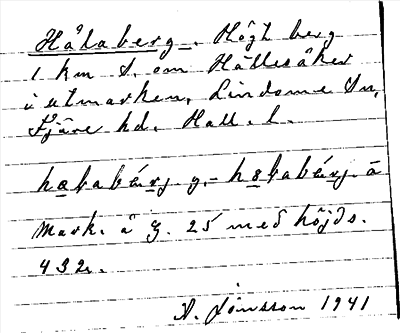 Hålaberg. Högt berg
1 km S. om Hällesåker
i utmarken, Lindome Sn,
Fjäre hd. Hall. l.
Mark. å g. 25 med höjds.
432.
A. Jonsson 1941